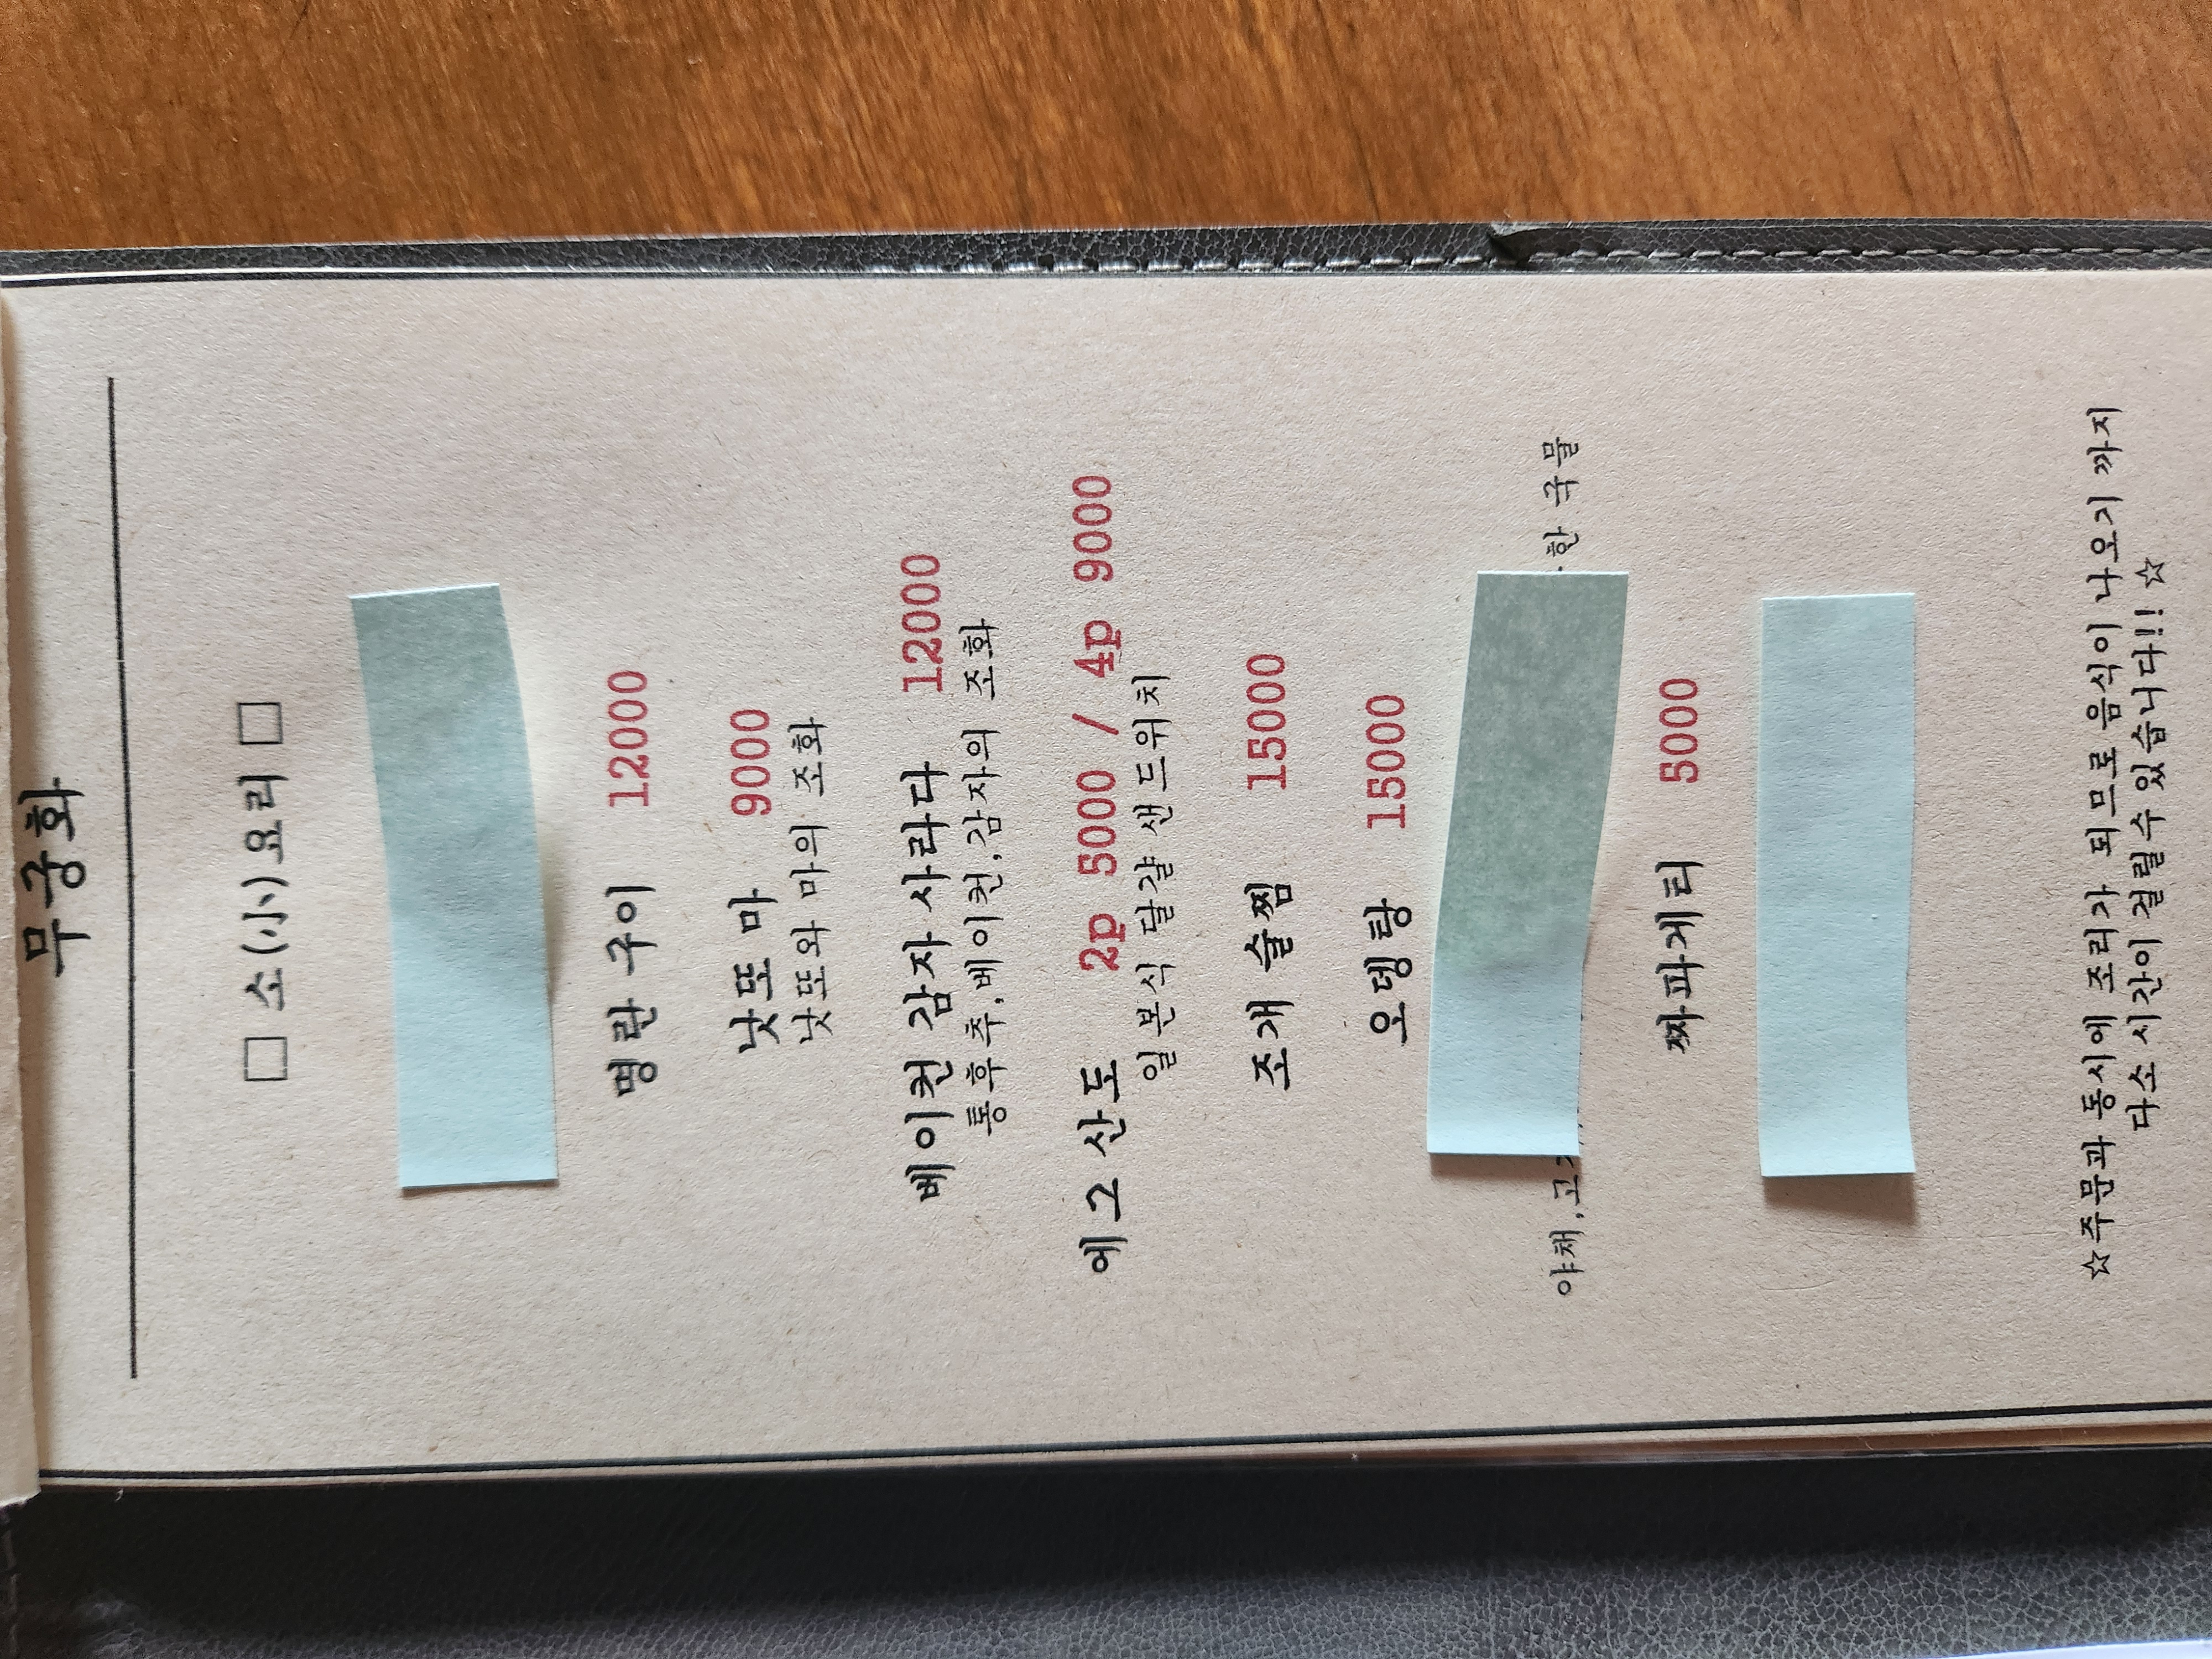 무궁화
□ 소(小)요리 □
명란 구이 12000
낫또 마 9000
낫또와 마의 조화
베이컨 감자 사라다 12000
통후추,베이컨,감자의 조화
에그 산도 2p 5000 / 4p 9000
일본식 달걀 샌드위치
조개 술찜 15000
오뎅탕 15000
야채, 국물
짜파게티 5000
☆주문과 동시에 조리가 되므로 음식이 나오기 까지
다소 시간이 걸릴수 있습니다!!☆